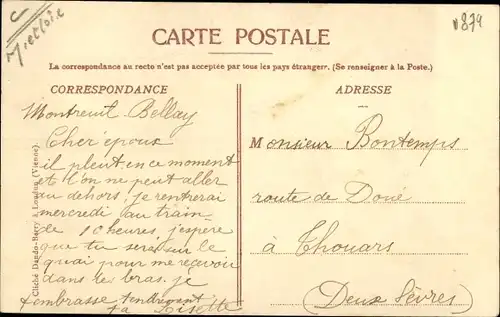 C
v874
CARTE POSTALE
La correspondance au recto n'est pas acceptée par tous les pays étranger. (Se renseigner à la Poste.)
CORRESPONDANCE
Montreuil Bellay
Cher époux
il pleut en ce moment
et l'on ne peut aller
au dehors, je rentrerai
mercredi au train
de 10 heures, j'espere
que tu seras sur le
quai pour me recevoir
dans tes bras. je
t'embrasse tendrement
ta Lisette
Cliché Dando-Berry à Loudun (Vienne).
ADRESSE
Monsieur Bontemps
route de Doué
à Thouars
(Deux Sèvres)